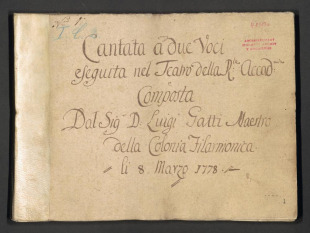 Cantata a due Voci
eseguita nel Teatro della R.le Accad.
Composta
Dal Sig.r D. Luigi Gatti Maestro
della Colonia Filarmonica
li 8. Marzo 1778